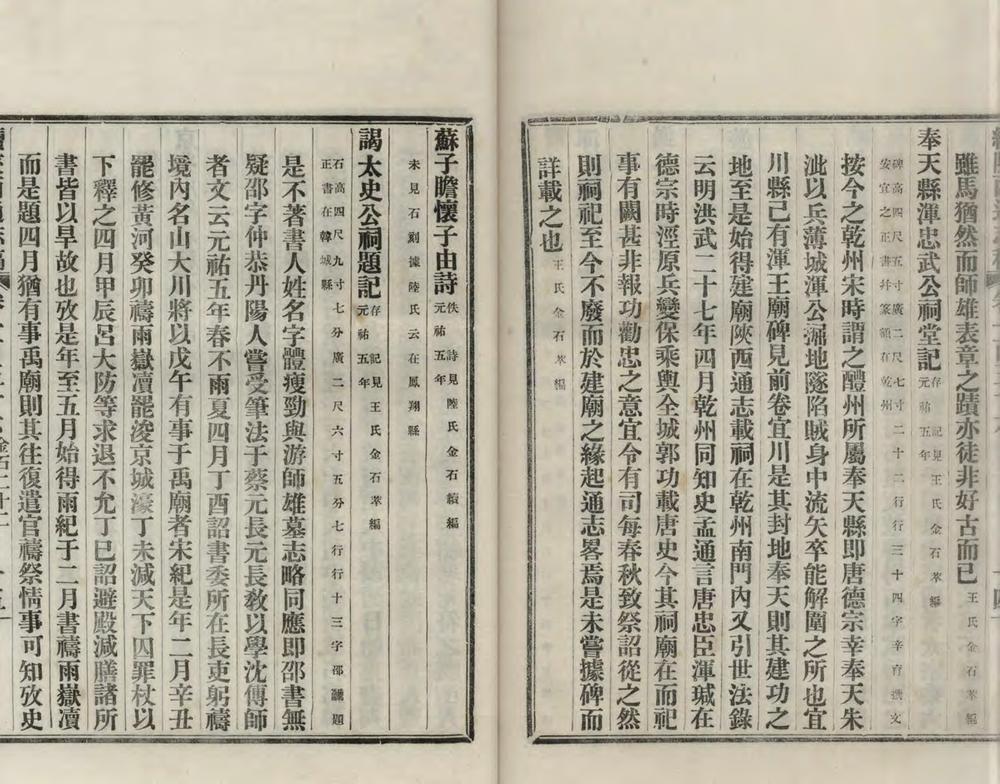 雖馬猶然而師雄表章之蹟亦徒非好古而已王氏金石萃編
奉天縣渾忠武公祠堂記存 記見王氏金石萃編
元祐五年
碑高四尺五寸廣二尺七寸二十二行行三十四字辛育撰文
安宜之正書幷篆額在乾州
按今之乾州宋時謂之醴州所屬奉天縣即唐德宗幸奉天朱
泚以兵薄城渾公漏地隧陷賊身中流矢卒能解圍之所也宜
川縣己有渾王廟碑見前卷宜川是其封地奉天則其建功之
地至是始得建廟陝西通志載祠在乾州南門內又引世法錄
云明洪武二十七年四月乾州同知史孟通言唐忠臣渾瑊在
德宗時涇原兵變保乘輿全城郭功載唐史今其祠廟在而祀
事有闕甚非報功勸忠之意宜令有司每春秋致祭詔從之然
則祠祀至今不廢而於建廟之緣起通志畧焉是未嘗據碑而
詳載之也王氏金石萃編
蘇子瞻懷子由詩佚 詩見陸氏金石續編
元祐五年
未見石刻據陸氏云在鳳翔縣
謁太史公祠題記存 記見王氏金石萃編
元祐五年
石高四尺九寸七分廣二尺六寸五分七行行十三字邵䶵題
正書在韓城縣
是不著書人姓名字體瘦勁與游師雄墓志略同應即邵書無
疑邵字仲恭丹陽人嘗受筆法于蔡元長元長教以學沈傳師
者文云元祐五年春不雨夏四月丁酉詔書委所在長吏躬禱
境內名山大川將以戊午有事于禹廟者宋紀是年二月辛丑
罷修黃河癸卯禱雨嶽瀆罷浚京城濠丁未減天下囚罪杖以
下釋之四月甲辰呂大防等求退不允丁巳詔避殿減膳諸所
書皆以旱故也攷是年至五月始得雨紀于二月書禱雨嶽瀆
而是題四月猶有事禹廟則其往復遣官禱祭情事可知攷史